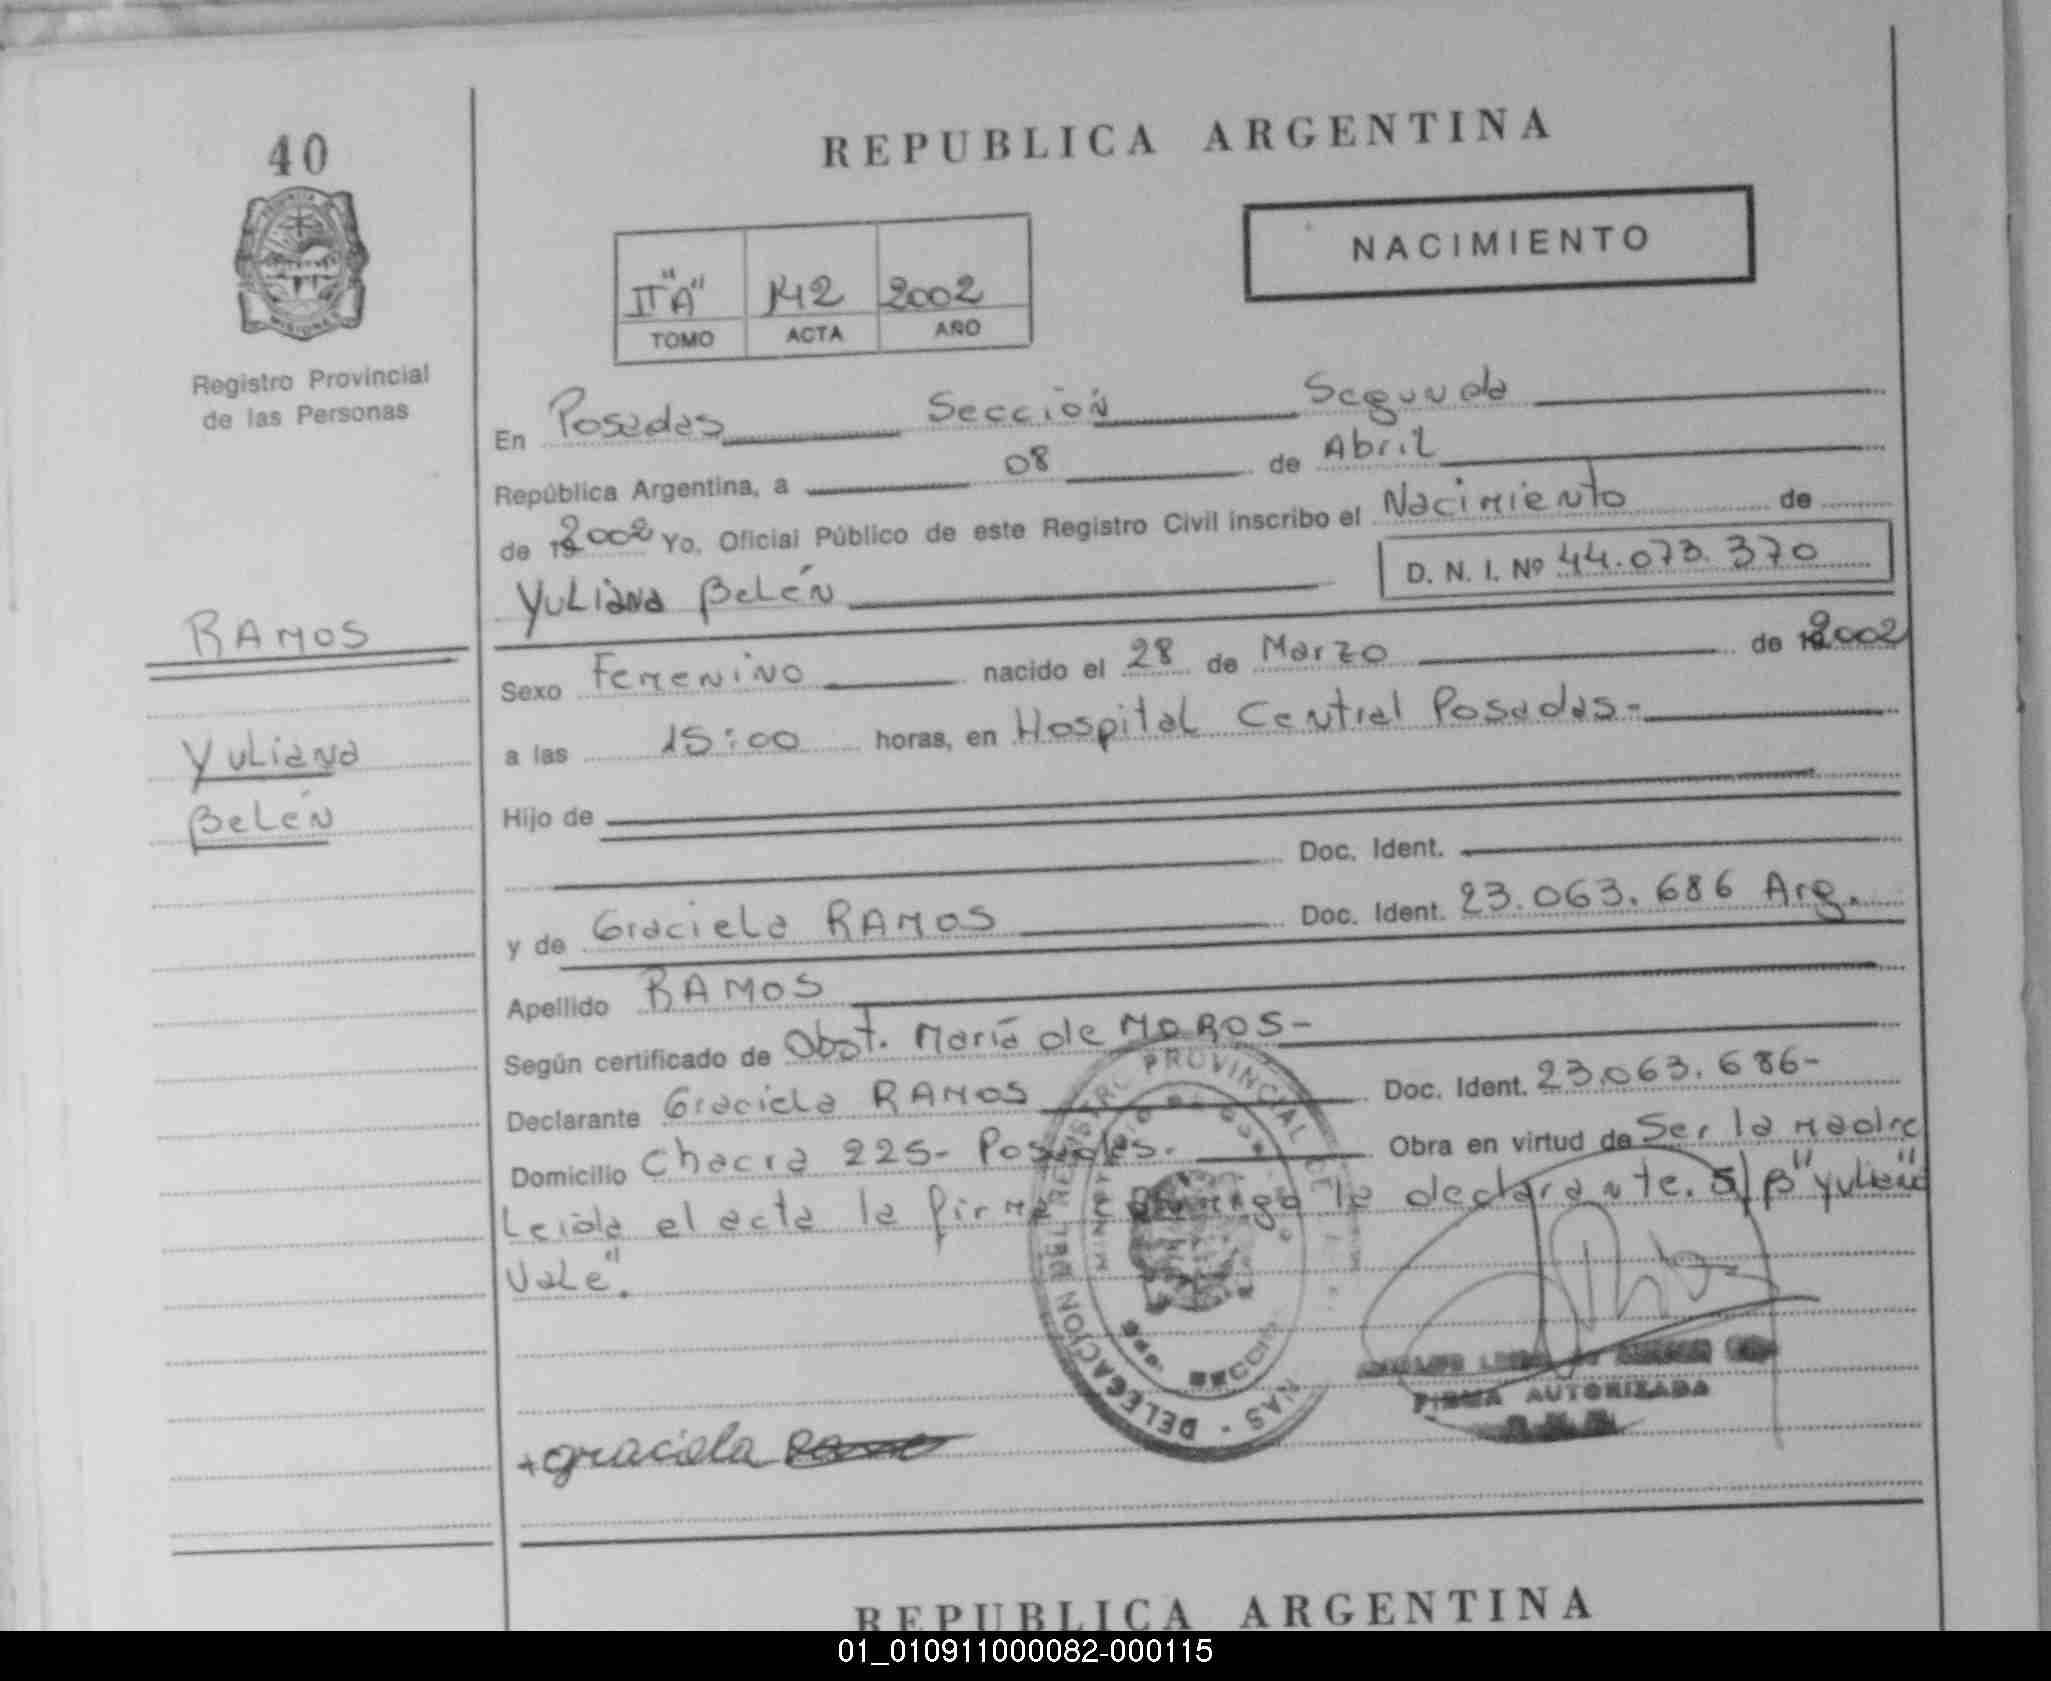 40
REPUBLICA ARGENTINA
NACIMIENTO
II "A" 142 2002
TOMO ACTA AÑO
Registro Provincial
de las Personas
En Posadas Sección Segunda
República Argentina, a 08 de Abril
de 2002 Yo, Oficial Público de este Registro Civil inscribo el Nacimiento de
Yuliana Belén D. N. I. Nº 44.073.370
RAMOS
Yuliana
Belén
Sexo Femenino nacido el 28 de Marzo de 2002
a las 15:00 horas, en Hospital Central Posadas-
Hijo de
Doc. Ident.
y de Graciela RAMOS Doc. Ident. 23.063.686 Arg.
Apellido RAMOS
Según certificado de Obst. María de MOROS-
Declarante Graciela RAMOS Doc. Ident. 23.063.686-
Domicilio Chacra 225- Posadas. Obra en virtud de Ser la madre
Leída el acta la firma conmigo la declarante. S/B "Yuliana
Vale".
DELEGACION
SECCION
FIRMA AUTORIZADA
graciela
REPUBLICA ARGENTINA
01_010911000082-000115